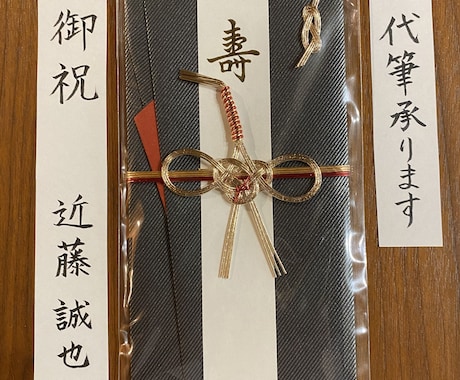 代筆承ります
寿
御祝 近藤誠也